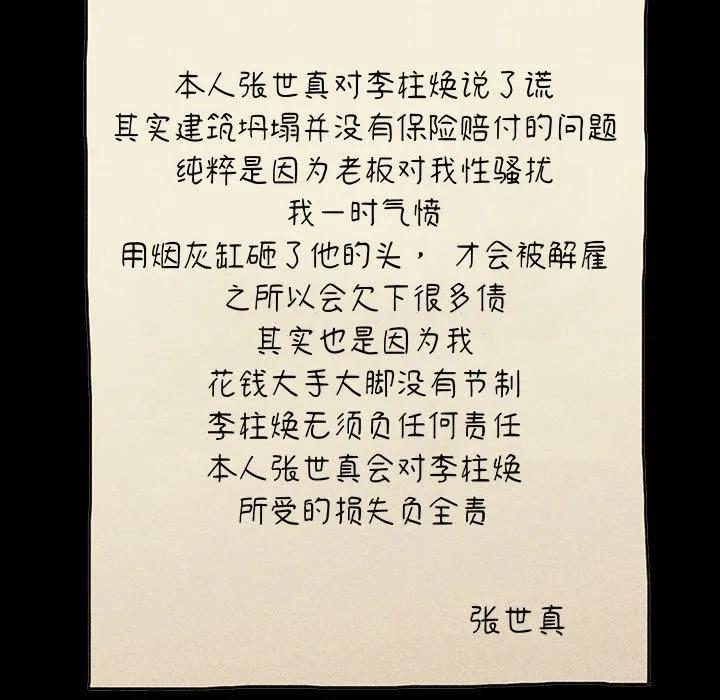 本人张世真对李柱焕说了谎
其实建筑坍塌并没有保险赔付的问题
纯粹是因为老板对我性骚扰
我一时气愤
用烟灰缸砸了他的头，才会被解雇
之所以会欠下很多债
其实也是因为我
花钱大手大脚没有节制
李柱焕无须负任何责任
本人张世真会对李柱焕
所受的损失负全责
张世真